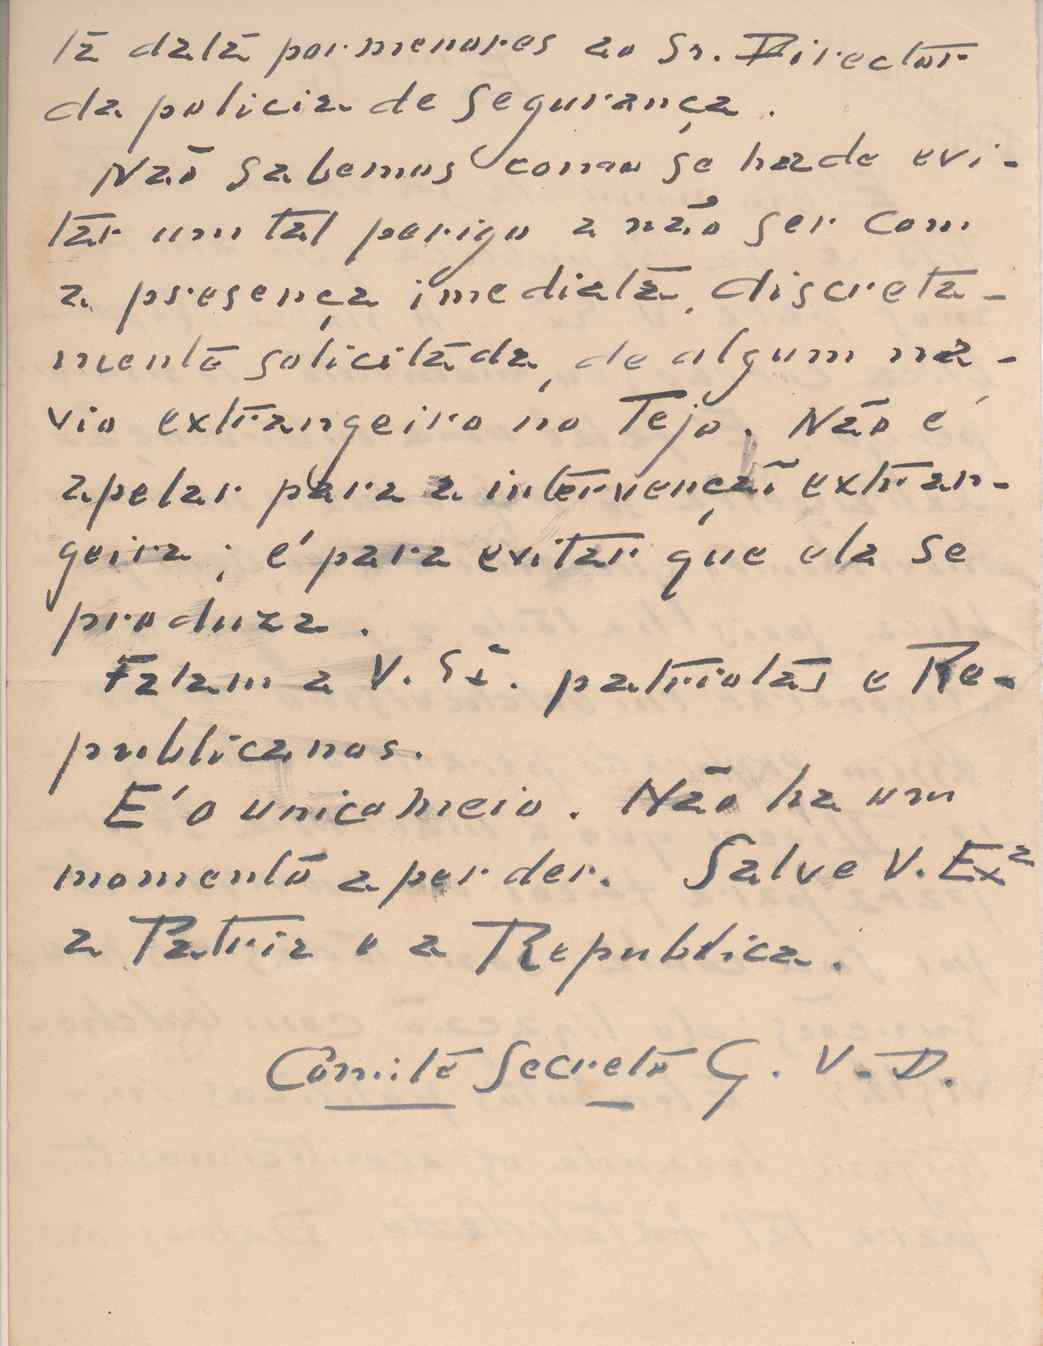 ta data pormenores ao Sr. Director
da policia de segurança.
Não sabemos como se hade evi-
tar um tal perigo a não ser com
a presença imediata, discreta-
mente solicitada, de algum na-
vio extrangeiro no Tejo. Não é
apelar para a intervençaĩ extran-
geira; é para evitar que ela se
produza.
Falam a V. Exª. patriotas e Re-
publicanos.
E' o unico meio. Não ha um
momento a perder. Salve V. Exª
a Patria e a Republica.
Comité Secreto G. V. D.